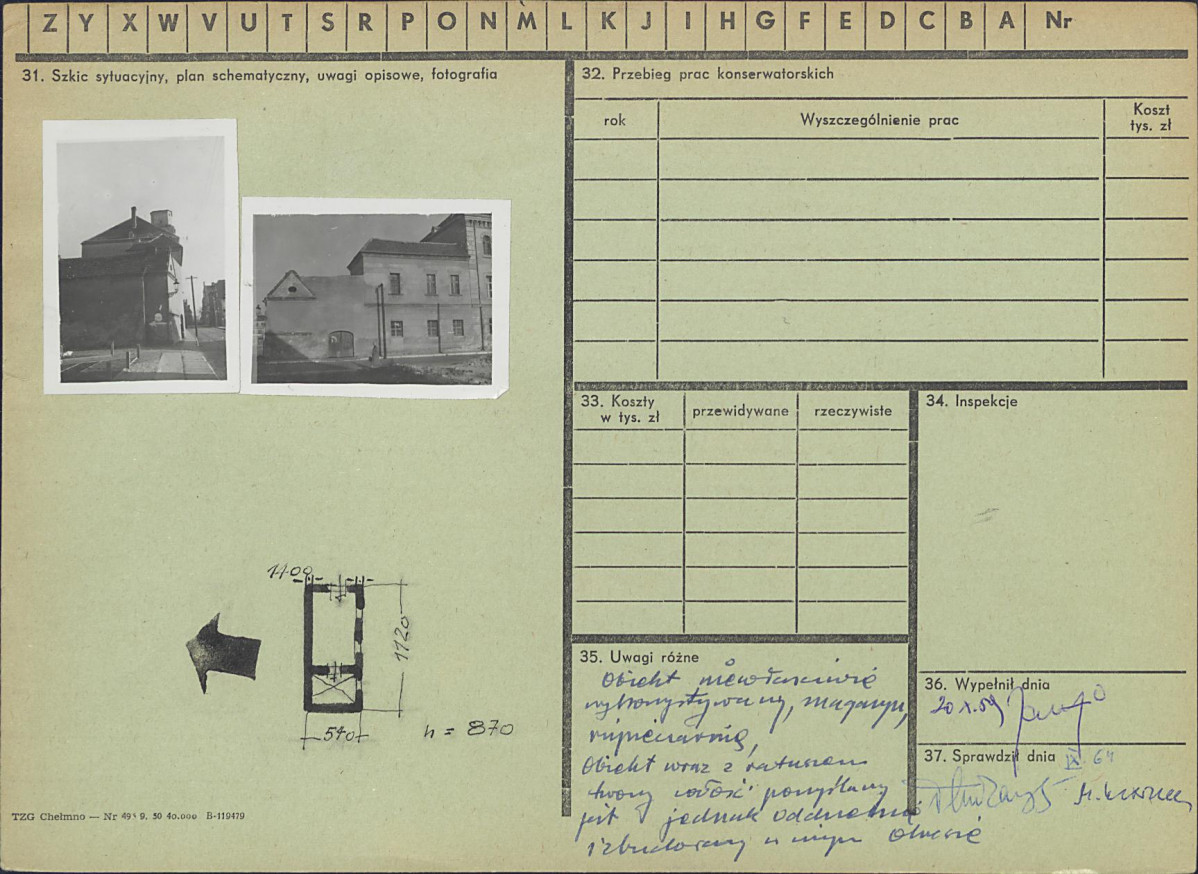 Z Y X W V U T S R P O N M L K J I H G F E D C B A Nr
31. Szkic sytuacyjny, plan schematyczny, uwagi opisowe, fotografia
32. Przebieg prac konserwatorskich
rok
Wyszczególnienie prac
Koszt
tys. zł
33. Koszty
w tys. zł
przewidywane
rzeczywiste
34. Inspekcje
1120
540
h = 870
35. Uwagi różne
Obiekt niewłaściwie
wykorzystywany, magazyn,
Obiekt wraz z ratuszem
tworzy całość pomyślany
jest jednak oddzielnie
i zbudowany w innym okresie
36. Wypełnił dnia
20.X.59
37. Sprawdził dnia
IX. 64
TZG Chełmno — Nr 495 9. 50 40.000 B-119479